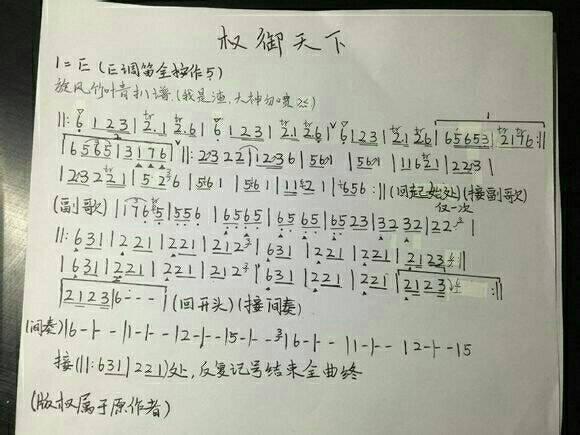 权御天下
1=E (E调笛全按作5)
旋风竹叶青扒谱 (我是渣,大神勿喷≥≤)
‖: 6 123 | 2.1 2.6 | 6 123 | 2.1 2.6 | 6 123 | 2.1 2.6 | 65653 | 2176 :‖
| 6565 | 3176 ‖: 2322 | 1236 | 561 | 561 | 11621 | 223 |
| 2322 21 | 5 236 | 561 | 561 | 11121 | 656 :‖ (回起始处)(接副歌)
仅一次
(副歌) | 17665 | 556 | 6565 | 6565 | 6523 | 3232 | 22 |
‖: 631 | 221 | 221 | 212 | 631 | 221 | 221 | 2123 ‖
| 631 | 221 | 221 | 212 | 631 | 221 | 221 | 2123 :‖
| 2123 | 6 - - - | (回开头)(接间奏)
(间奏) | 6 - | - - | 1 - | - - | 2 - | - - | 5 - | - - | 6 - | - - | 1 - | - - | 2 - | - | 5
接(‖: 631 | 221)处, 反复记号结束全曲终
(版权属于原作者)